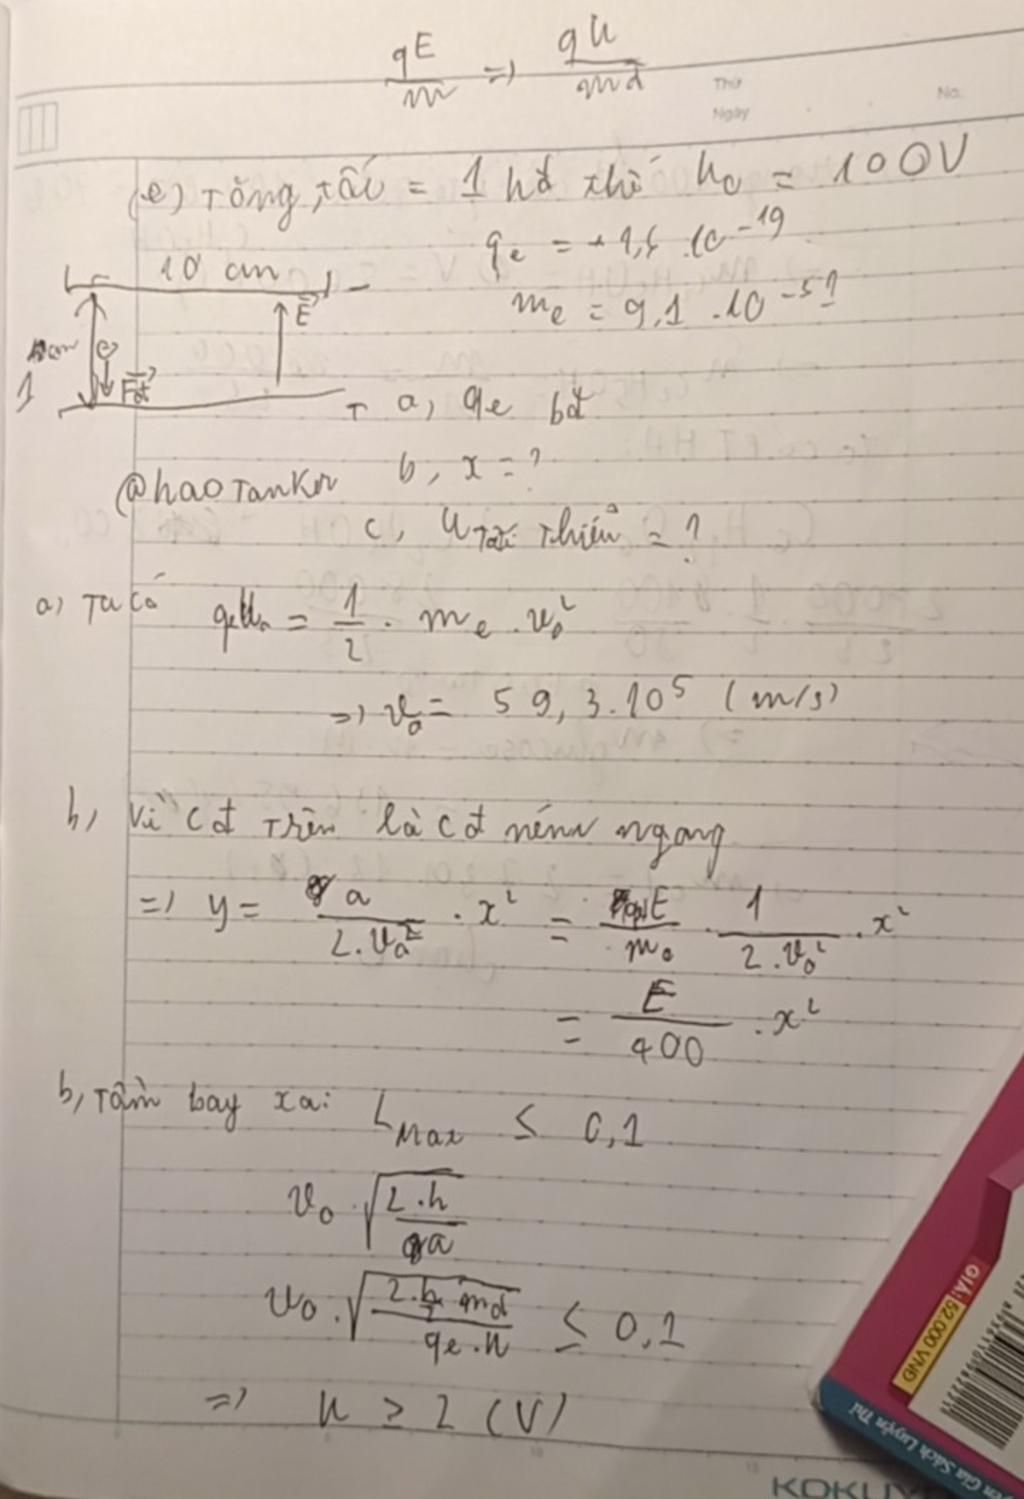 qE/m => qU/md
Thứ
Ngày
No.
(e) Tăng tốc = 1 hđ thế U₀ = 100V
10 cm
qₑ = -1,6 .10⁻¹⁹
mₑ = 9,1 .10⁻³¹
E
1
e
Fđ
a, qₑ bđ
b, x = ?
@haoTanker
c, U tối thiểu = ?
a) Ta có qₑU₀ = 1/2 . mₑ . v₀²
=> v₀ = 59,3.10⁵ (m/s)
b, Vì cđ trên là cđ ném ngang
=> y = a/2.v₀² . x² = qE/m₀ . 1/2.v₀² . x²
= E/400 . x²
b, Tầm bay xa: L Max ≤ 0,1
v₀ . √(2.h/a)
v₀ . √(2.h.md/qₑ.U) ≤ 0,1
=> U ≥ 2 (V)
GIÁ: 52.000 VND
Gia Sách Luyện Thi
KOKUY